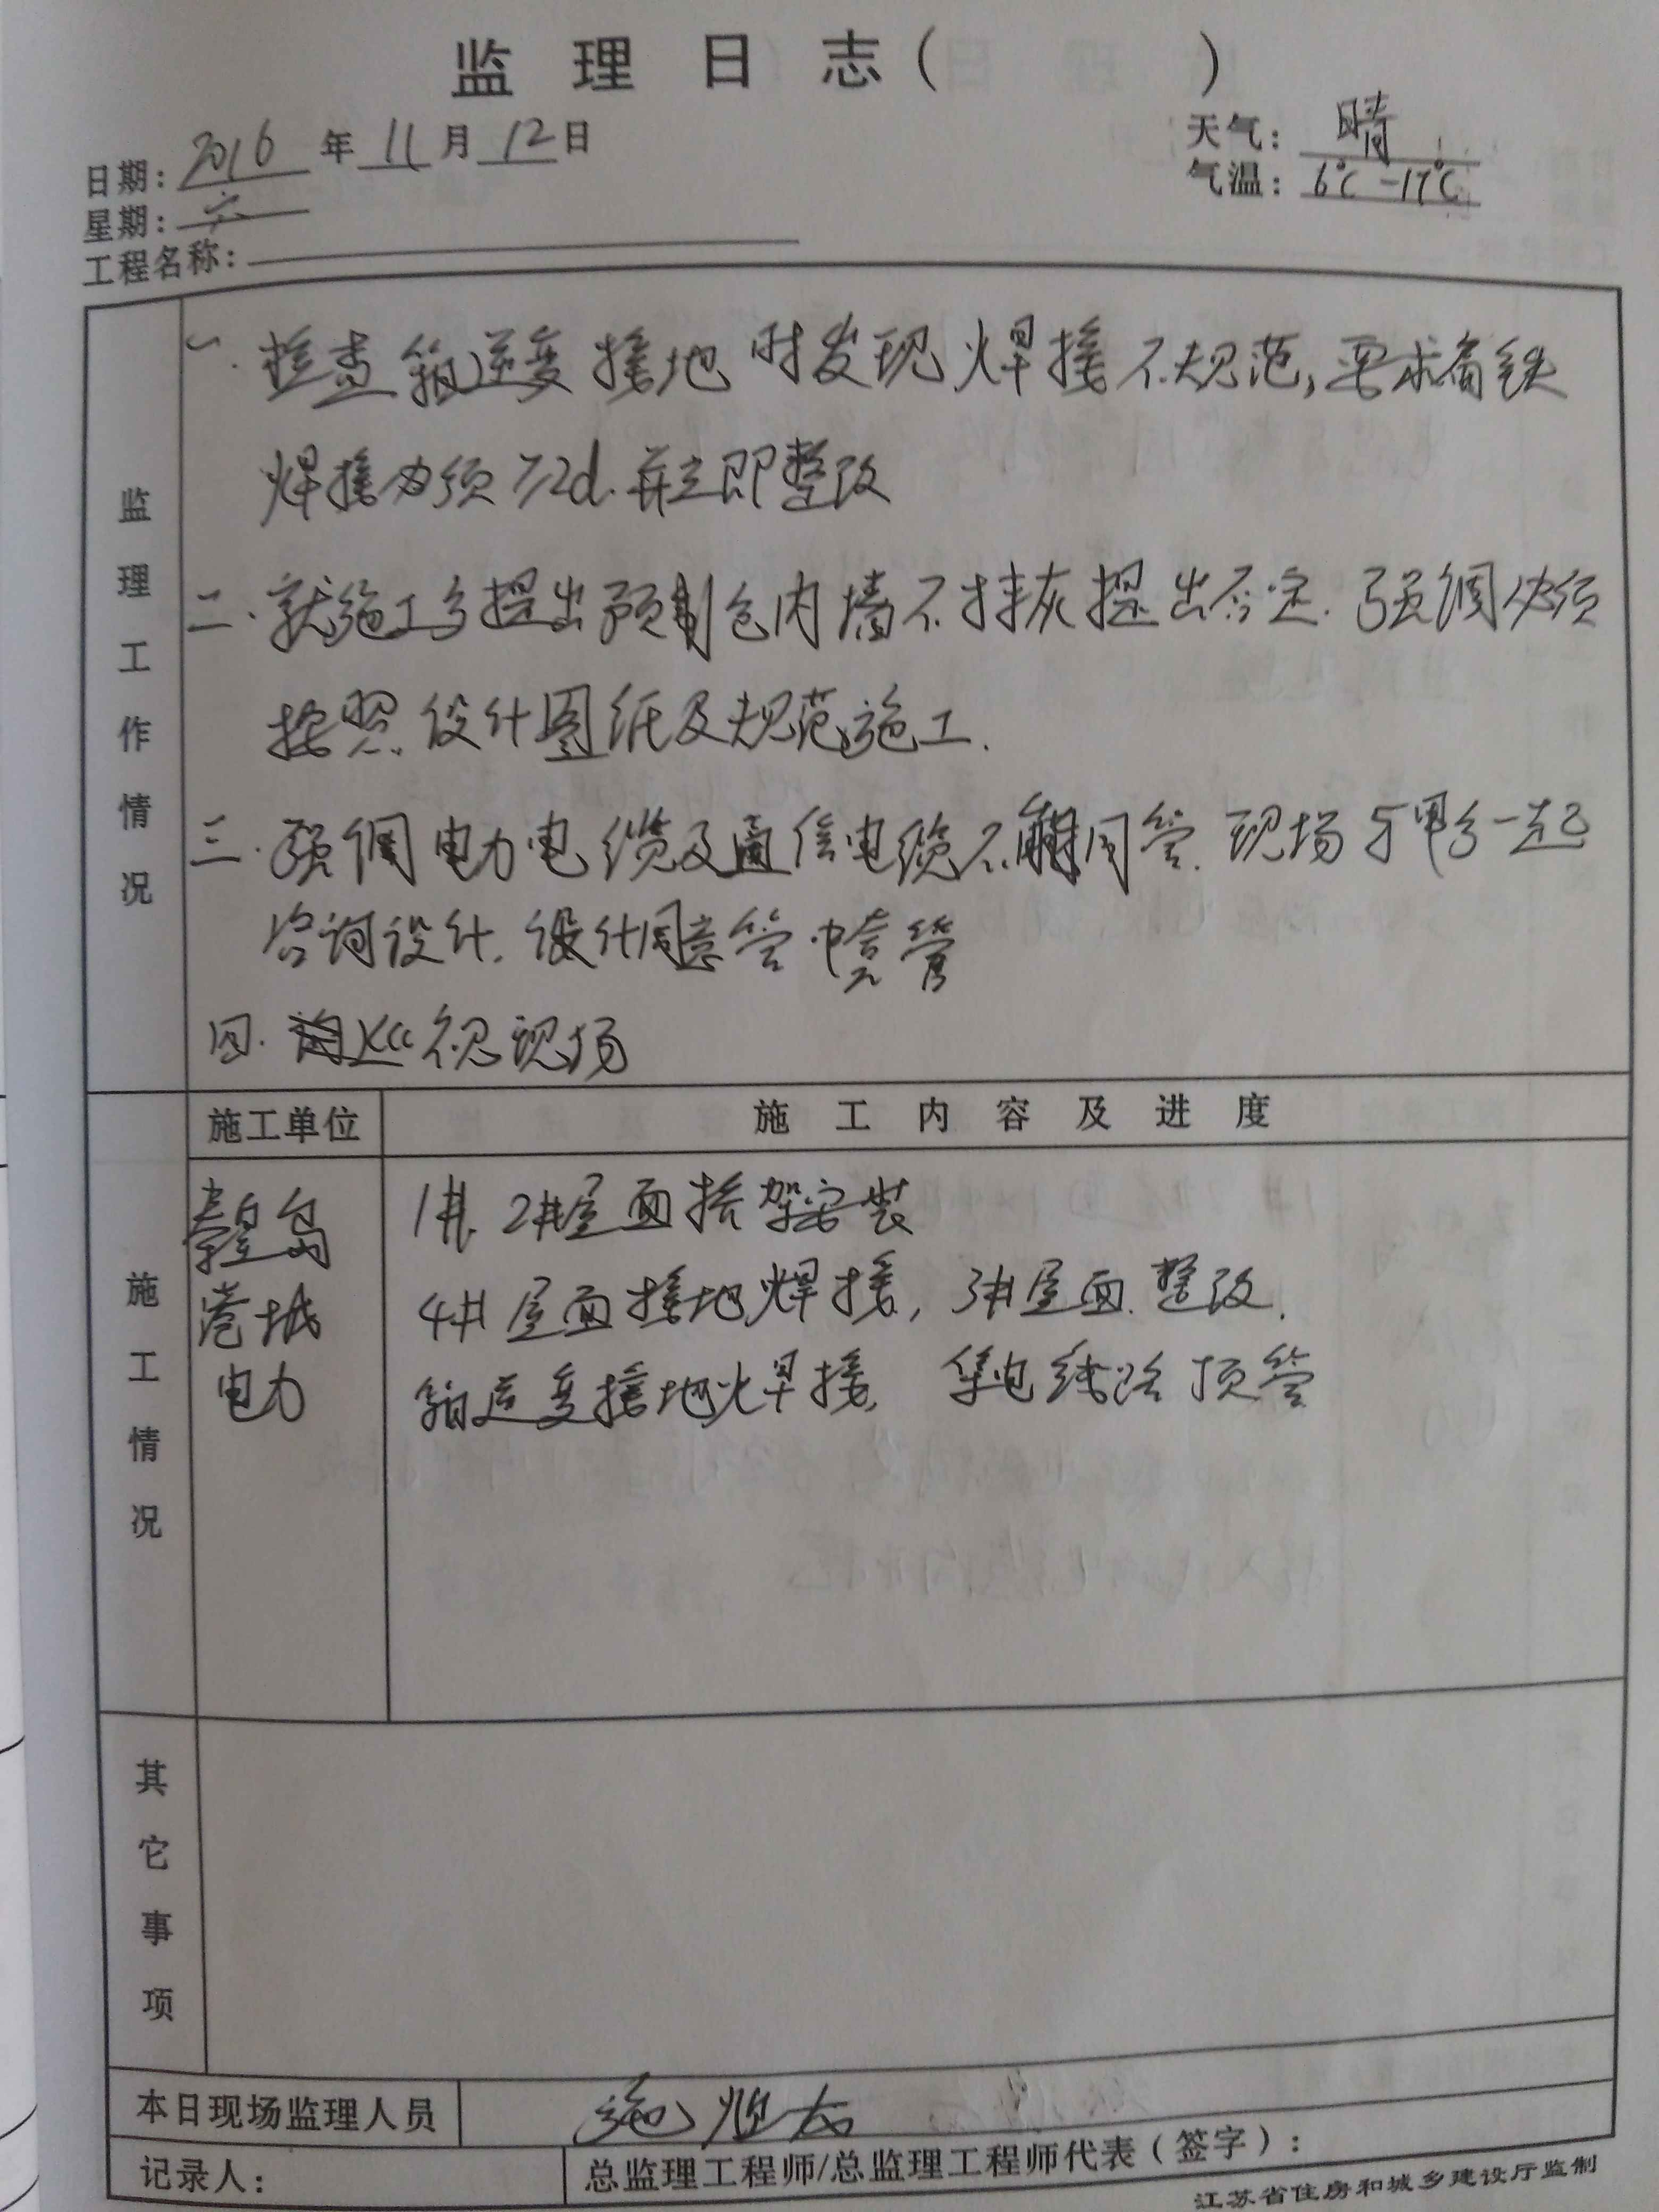 监理日志（ ）
日期：2016年11月12日
天气：晴
星期：六
气温：6℃-17℃
工程名称：
监理工作情况
一.检查箱逆变接地时发现焊接不规范，要求扁铁
焊接必须≥2d.并立即整改
二.就施工方提出预制仓内墙不抹灰提出否定.强调必须
按照设计图纸及规范施工.
三.强调电力电缆及通信电缆不能同管.现场与甲方一起
咨询设计.设计同意管中套管
四.巡视现场
施工单位 施工内容及进度
施工情况
秦皇岛
港城
电力
1#、2#屋面搭架安装
4#屋面接地焊接，3#屋面整改.
箱逆变接地焊接，集电线路顶管
其它事项
本日现场监理人员 施
记录人： 总监理工程师/总监理工程师代表（签字）：
江苏省住房和城乡建设厅监制